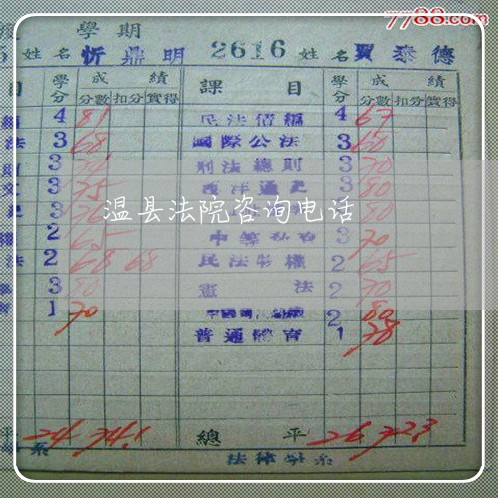 7788.com
學期
姓名 忻鼎明 2616 姓名 賈泰德
目 學分 成績 課目 學分 成績
分數 扣分 實得 分數 扣分 實得
4 81 民法債編 4 67
法 3 68 國際公法 3 60
3 刑法總則 3 70
3 75 西洋通史 3 80
3 80
溫县法院咨询电话
權 2 65 3 70
法 2 68 68 民法物權 2 65
3 80 憲法 2 70
1 70 2 80
普通體育 1 78
平 24 74.1 總平 26 72.3
系 法律學系